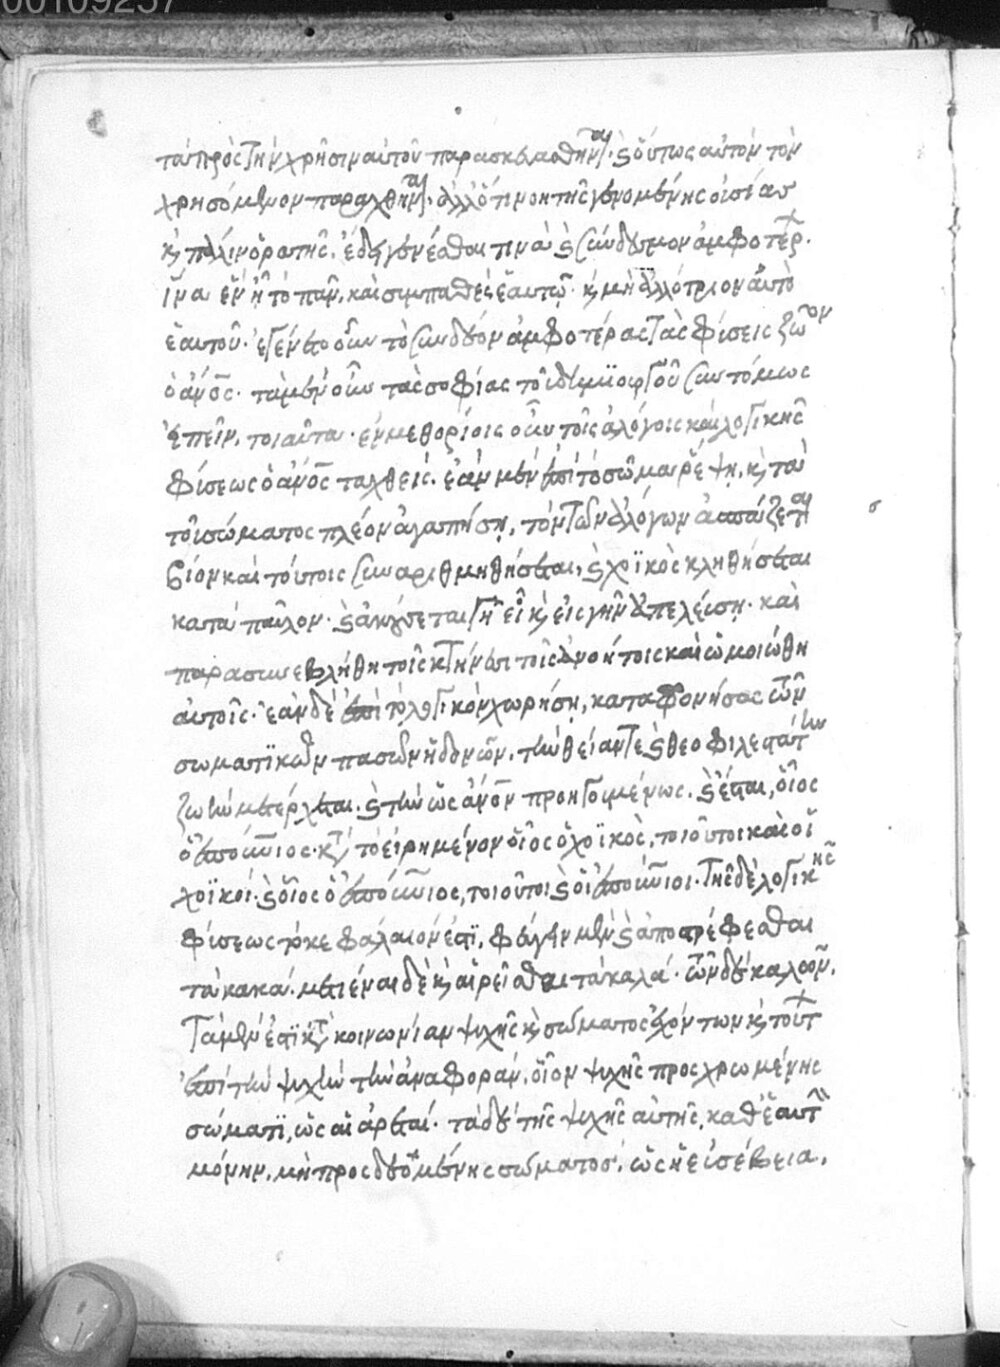 00109257
τὰ πρὸς τὴν χρῆσιν αὐτοῦ παρασκευασθῆναι. καὶ οὕτως αὐτὸν τὸν
χρησόμενον παραχθῆναι. ἀλλ' ὅτι νοητῆς γενομένης οὐσίας
καὶ πάλιν ὁρατῆς, ἔδει γενέσθαι τινὰ καὶ σύνδεσμον ἀμφοτέρων.
ἵνα ἓν ᾖ τὸ πᾶν, καὶ συμπαθὲς ἑαυτῷ. καὶ μὴ ἀλλότριον αὐτὸ
ἑαυτοῦ. ἐγένετο οὖν τὸ συνδέον ἀμφοτέρας τὰς φύσεις ζῶον
ὁ ἄνος. τὰ μὲν οὖν τῆς σοφίας τοῦ δημιουργοῦ συντόμως
εἰπεῖν, τοιαῦτα. ἐν μεθορίοις οὖν τῆς ἀλόγου καὶ λογικῆς
φύσεως ὁ ἄνος ταχθείς. ἐὰν μὲν ἐπὶ τὸ σῶμα ῥέψῃ, καὶ τὰ
τοῦ σώματος πλέον ἀγαπήσῃ, τὸν τῶν ἀλόγων ἀσπάζεται
βίον καὶ τούτοις συναριθμηθήσεται, καὶ χοϊκὸς κληθήσεται
κατὰ παῦλον. καὶ ἀκούσεται γῆ εἶ καὶ εἰς γῆν ἀπελεύσῃ. καὶ
παρασυνεβλήθη τοῖς κτήνεσι τοῖς ἀνοήτοις καὶ ὡμοιώθη
αὐτοῖς. ἐὰν δὲ ἐπὶ τὸ λογικὸν χωρήσῃ, καταφρονήσας τῶν
σωματικῶν πασῶν ἡδονῶν, τὴν θείαν τε καὶ θεοφιλεστάτην
ζωὴν μετέρχεται. καὶ τὴν ὡς ἄνον προηγουμένως. καὶ ἔσται, οἷος
ὁ ἐπουράνιος. κατὰ τὸ εἰρημένον οἷος ὁ χοϊκὸς, τοιοῦτοι καὶ οἱ
χοϊκοί. καὶ οἷος ὁ ἐπουράνιος, τοιοῦτοι καὶ οἱ ἐπουράνιοι. τῆς δὲ λογικῆς
φύσεως τὸ κεφάλαιόν ἐστι, φεύγειν μὲν καὶ ἀποστρέφεσθαι
τὰ κακά. μετιέναι δὲ καὶ αἱρεῖσθαι τὰ καλά. τῶν δὲ καλῶν,
τὰ μέν ἐστι κατὰ κοινωνίαν ψυχῆς καὶ σώματος ἐχόντων καὶ τούτων
ἐπὶ τὴν ψυχὴν τὴν ἀναφοράν, οἷον ψυχῆς προσχρωμένης
σώματι, ὡς αἱ ἀρεταί. τὰ δὲ τῆς ψυχῆς αὐτῆς, καθ' ἑαυτὴν
μόνην, μὴ προσδεομένης σώματος, ὡς ἡ εὐσέβεια,